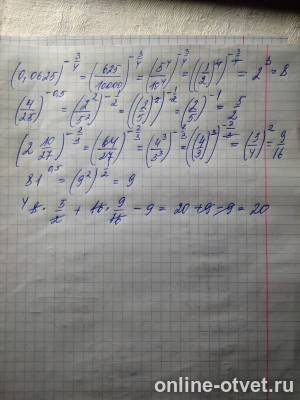 (0,0625)^{-3/4} = (625/10000)^{-3/4} = (5^4/10^4)^{-3/4} = ((1/2)^4)^{-3/4} = 2^3 = 8
(4/25)^{-0,5} = (2^2/5^2)^{-1/2} = ((2/5)^2)^{-1/2} = (2/5)^{-1} = 5/2
(2 10/27)^{-2/3} = (64/27)^{-2/3} = (4^3/3^3)^{-2/3} = ((4/3)^3)^{-2/3} = (3/4)^2 = 9/16
81^{0,5} = (9^2)^{1/2} = 9
8 · 5/2 + 16 · 9/16 - 9 = 20 + 9 - 9 = 20
online-otvet.ru